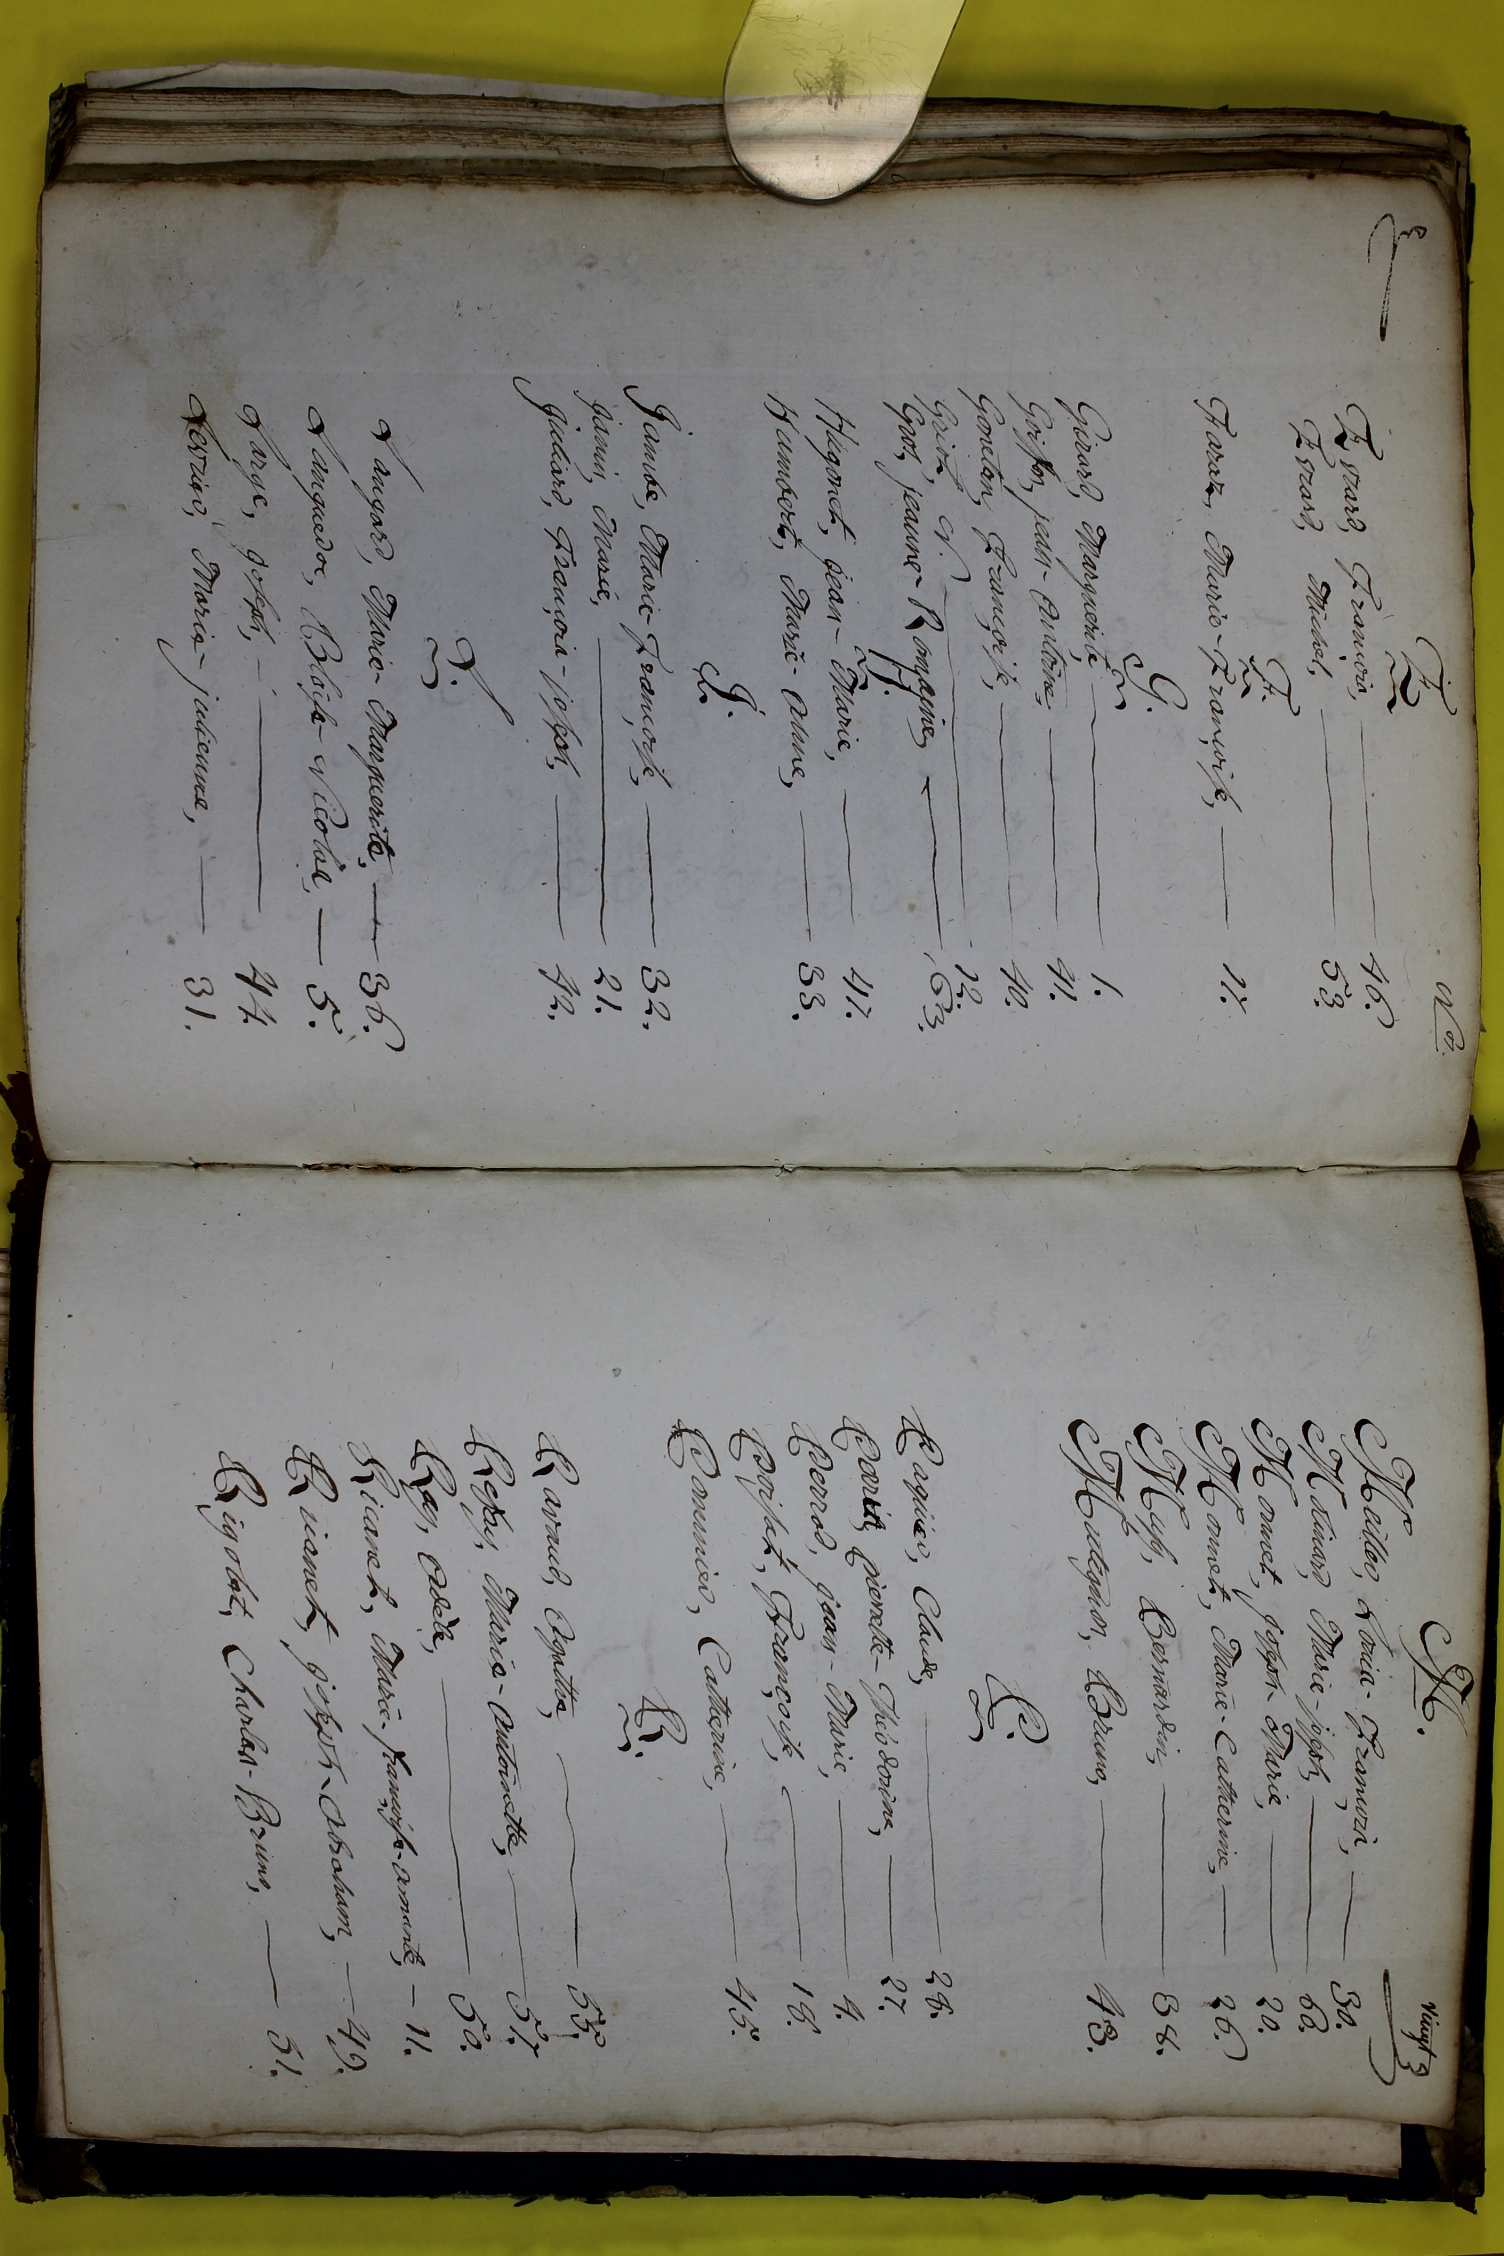 N.os
E
Evrard, François, 46.
Evrard, Michel, 53.
F.
Faraz, Marie-Françoise, 17.
G.
Girard, Marguerite 1.
Goisson, jean-antoine 41.
Gouetan, Françoise, 40.
Griot N. 12.
Gros, jeanne-Romaine, 63.
H.
Hugonet, jean-Marie, 47.
Humbert, Marie-anne, 33.
J.
Jambe, Marie-Françoise, 32.
Janin, Marie, 21.
Juliard, François-joseph, 42.
L.
Laugard, Marie-Marguerite, 36.
Languedoc, Blaise-Nicolas, 5.
Large, joseph, 44.
Lesrier, Marie-julienne, 31.
vingt 3
M.
Meillet, Louis-François, 30.
Minard, Marie-joseph, 60.
Monnet, joseph-Marie, 20.
Monnet, Marie-Catherine, 26.
Bernardin, 34.
Bruno, 43.
P.
Paquier, Claude, 28.
Paris, pierrette-Théodorine, 27.
Perrod, jean-Marie, 4.
Françoise, 18.
Pommier, Catherine, 45.
R.
Ravaud, 55.
Marie-antoinette, 57.
Rey, adèle, 50.
Ricanet, Marie-françoise-amante, 11.
Ricanet, joseph-abraham, 49.
Rigolot, Charles-Bruno, 51.